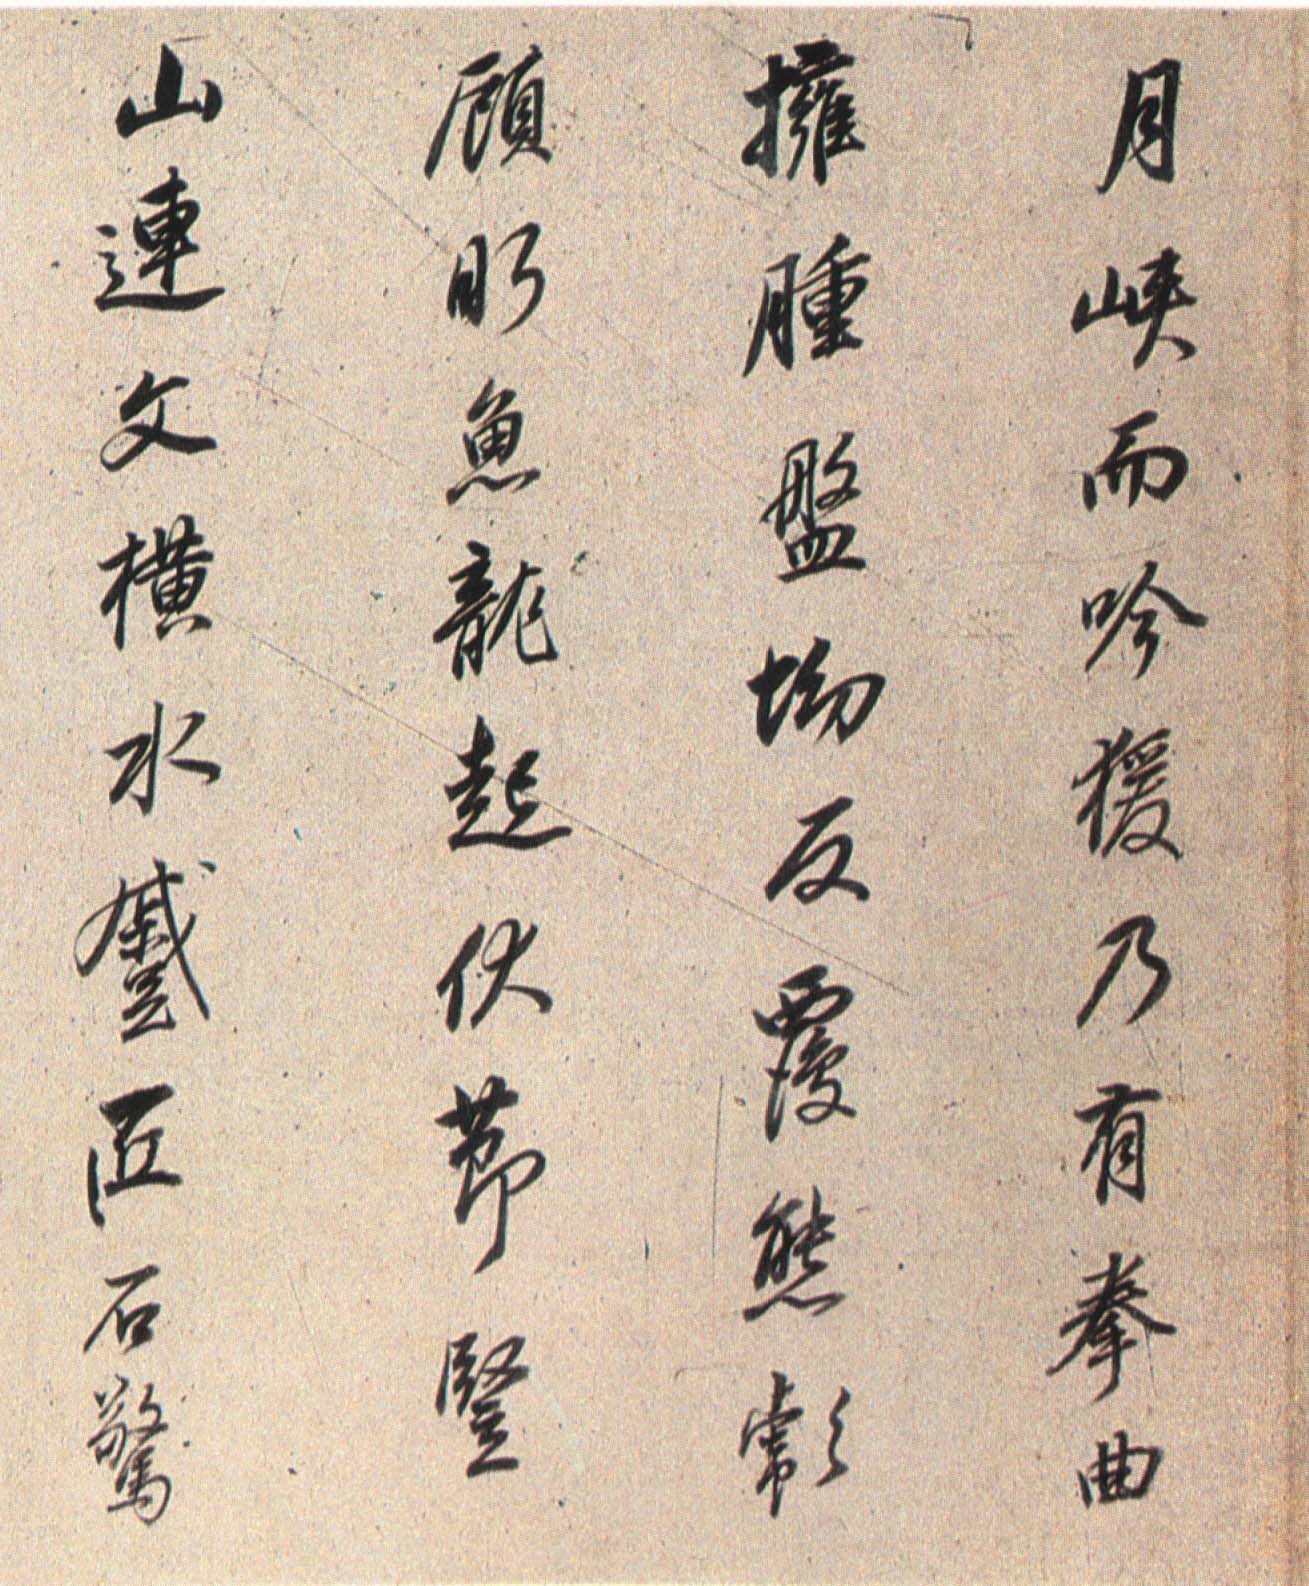 月峽而吟猨乃有拳曲
擁腫盤坳反覆熊彪
顧盻魚龍起伏節豎
山連文橫水蹙匠石驚